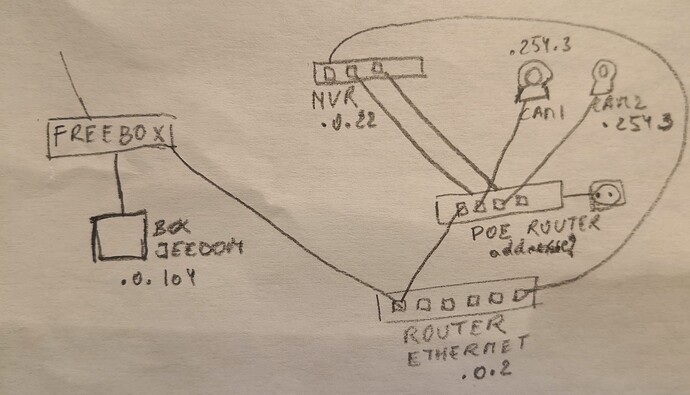 .254.3
NVR
.0.22
CAM1
CAM2
.254.3
FREEBOX
BOX
JEEDOM
.0.104
POE ROUTER
ROUTER
ETHERNET
.0.2